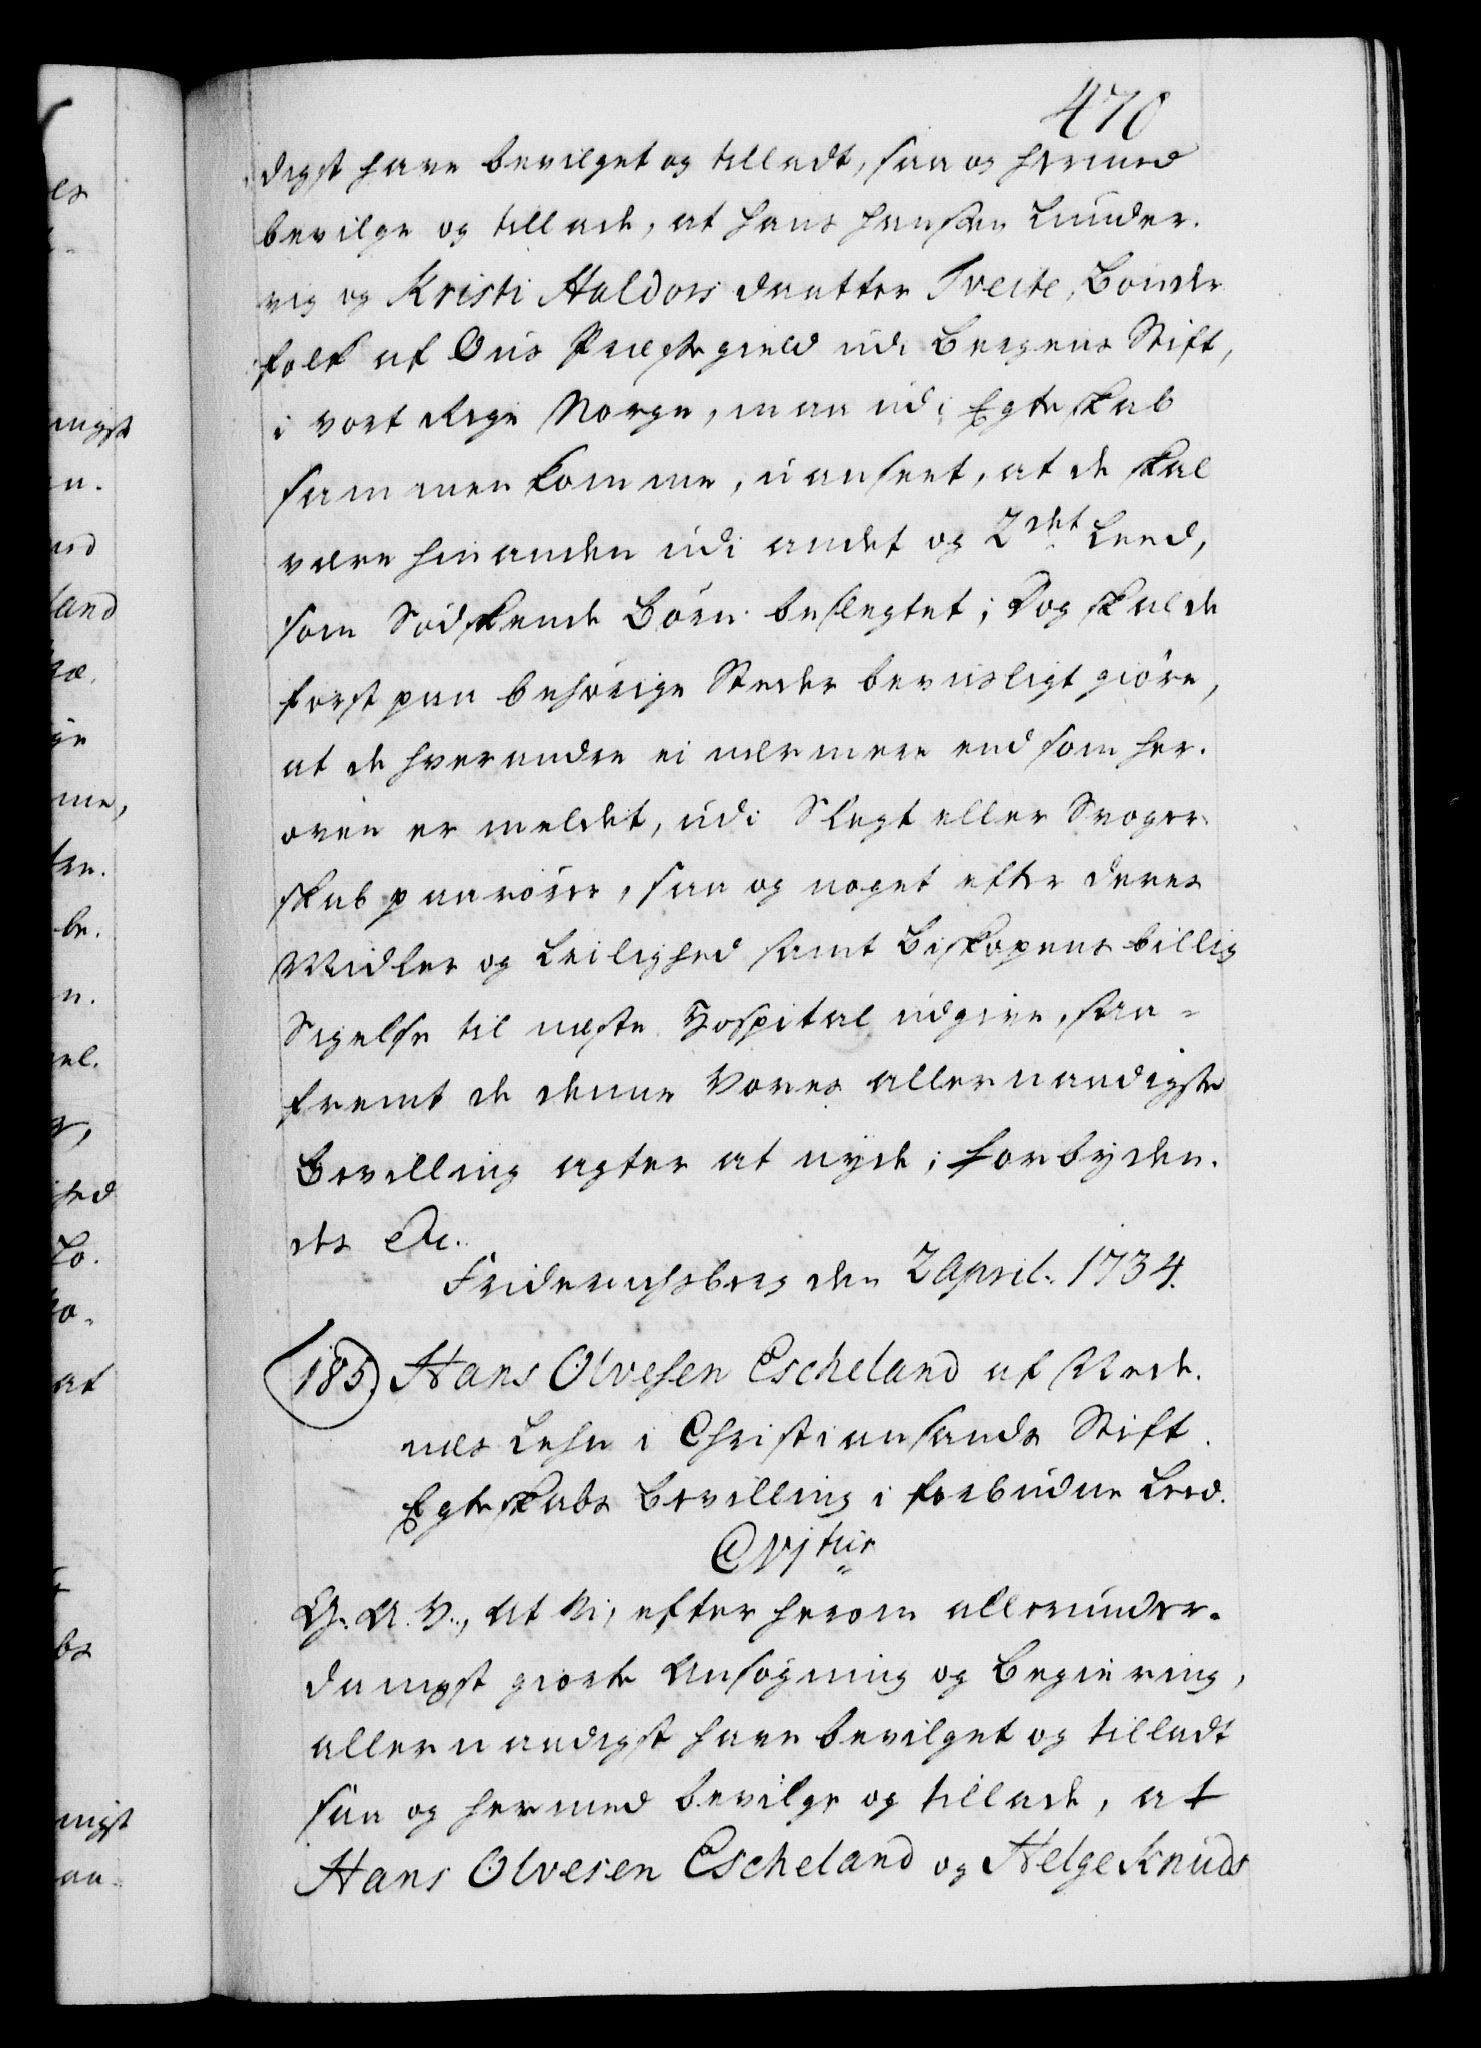 470
digst have bevilget og tilladt, saa og hermed
bevilge og tillade, at Hans Hansen Lunder-
vig og Kristi Haldors daatter Tveite, Bonde
folk af Ous Præstegield udi Bergens Stift,
i vort Rige Norge, maa udi Egteskab
sammen komme, uanseet, at de skal
være hinanden udi andet og 2det Leed,
som Sødskende Børn beslegtet; Dog skal de
først paa behørige Steder beviisligt giøre,
at de hverandre ei nærmere end som her-
oven er meldet, udi Slegt eller Svoger
skab paarører, saa og noget efter deres
Midler og Leilighed samt Biskopens billig
Sigelse til næste Hospital udgive, saa-
fremt de denne Vores allernaadigste
Bevilling agter at nyde; forbyden-
des &c.
Friderichsberg den 2 April 1734.
185) Hans Olvesen Escheland af Nede-
næs Lehn i Christiansands Stift
Egteskabs Bevilling i forbudne Leed.
C VI tus
G. A. V., at Vi, efter herom allerunder-
danigst giorte Ansøgning og Begiering,
allernaadigst have bevilget og tilladt
saa og hermed bevilge og tillade, at
Hans Olvesen Escheland og Helge Knuds